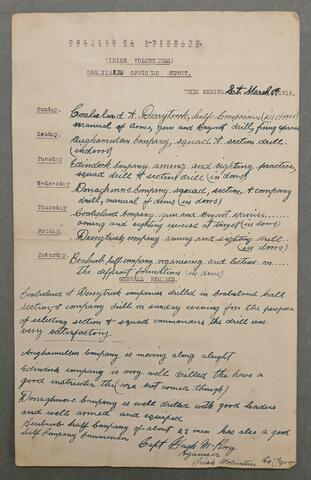 OGLAIGH NA H-EIREANN.
(IRISH VOLUNTEERS)
ORGANISING OFFICERS REPORT.
WEEK ENDING Sat March 1916.
Sunday. Coalisland & Derrytresk, half Companies (in doors)
manual of arms, gun and bayonet drill, firing exercise
Monday. Aughamullan Company, squad & section drill
(in doors)
Tuesday Edindork Company, aming, and sighting, practice,
squad drill & section drill (in doors)
Wednesday Donaghmore Company squad, section, & company
drill, manual of arms (in doors)
Thursday Coalisland Company, gun and bayonet exercise
aming and sighting exercise at target (in doors)
Friday. Derrytresk, company aming and sighting drill
(in doors)
Saturday. Benburb half company, organising and lecture on
the different formations (in doors)
GENERAL REMARKS.
Coalisland & Derrytresk companies drilled in Coalisland hall
section, & company drill on sunday evening for the purpose
of selecting section & squad commanders the drill was
very satisfactory
Aughamullan Company is moving along alright
Edindork company is very well drilled the have a
good instructor tho (are not armed though)
Donaghmore Company is well drilled with good leaders
and well armed and equiped
Benburb half Company of about 23 men has also a good
half Company Commander
Capt Hugh
Organiser
Irish Volunteers Co. Tyrone